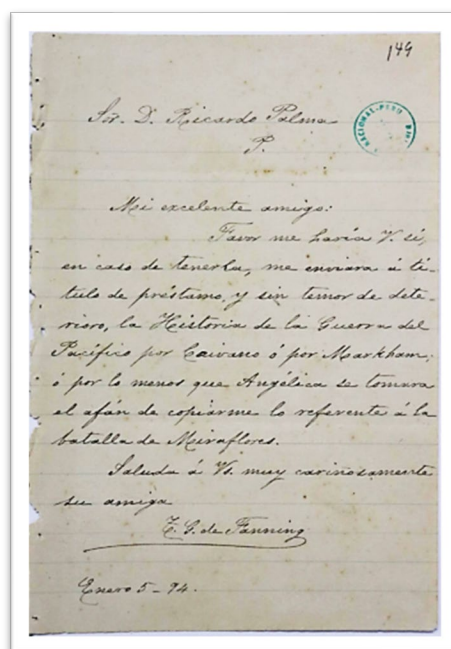 149
Sor. D. Ricardo Palma
P.
NACIONAL-PERU
Mi excelente amigo:
Favor me haría V. si,
en caso de tenerla, me enviara á tí-
tulo de préstamo, y sin temor de dete-
rioro, la Historia de la Guerra del
Pacífico por Caivano ó por Markham;
ó por lo menos que Angélica se tomara
el afán de copiarme lo referente á la
batalla de Miraflores.
Saluda á Vs. muy cariñosamente
su amiga
T. G. de Fanning
Enero 5 - 94.